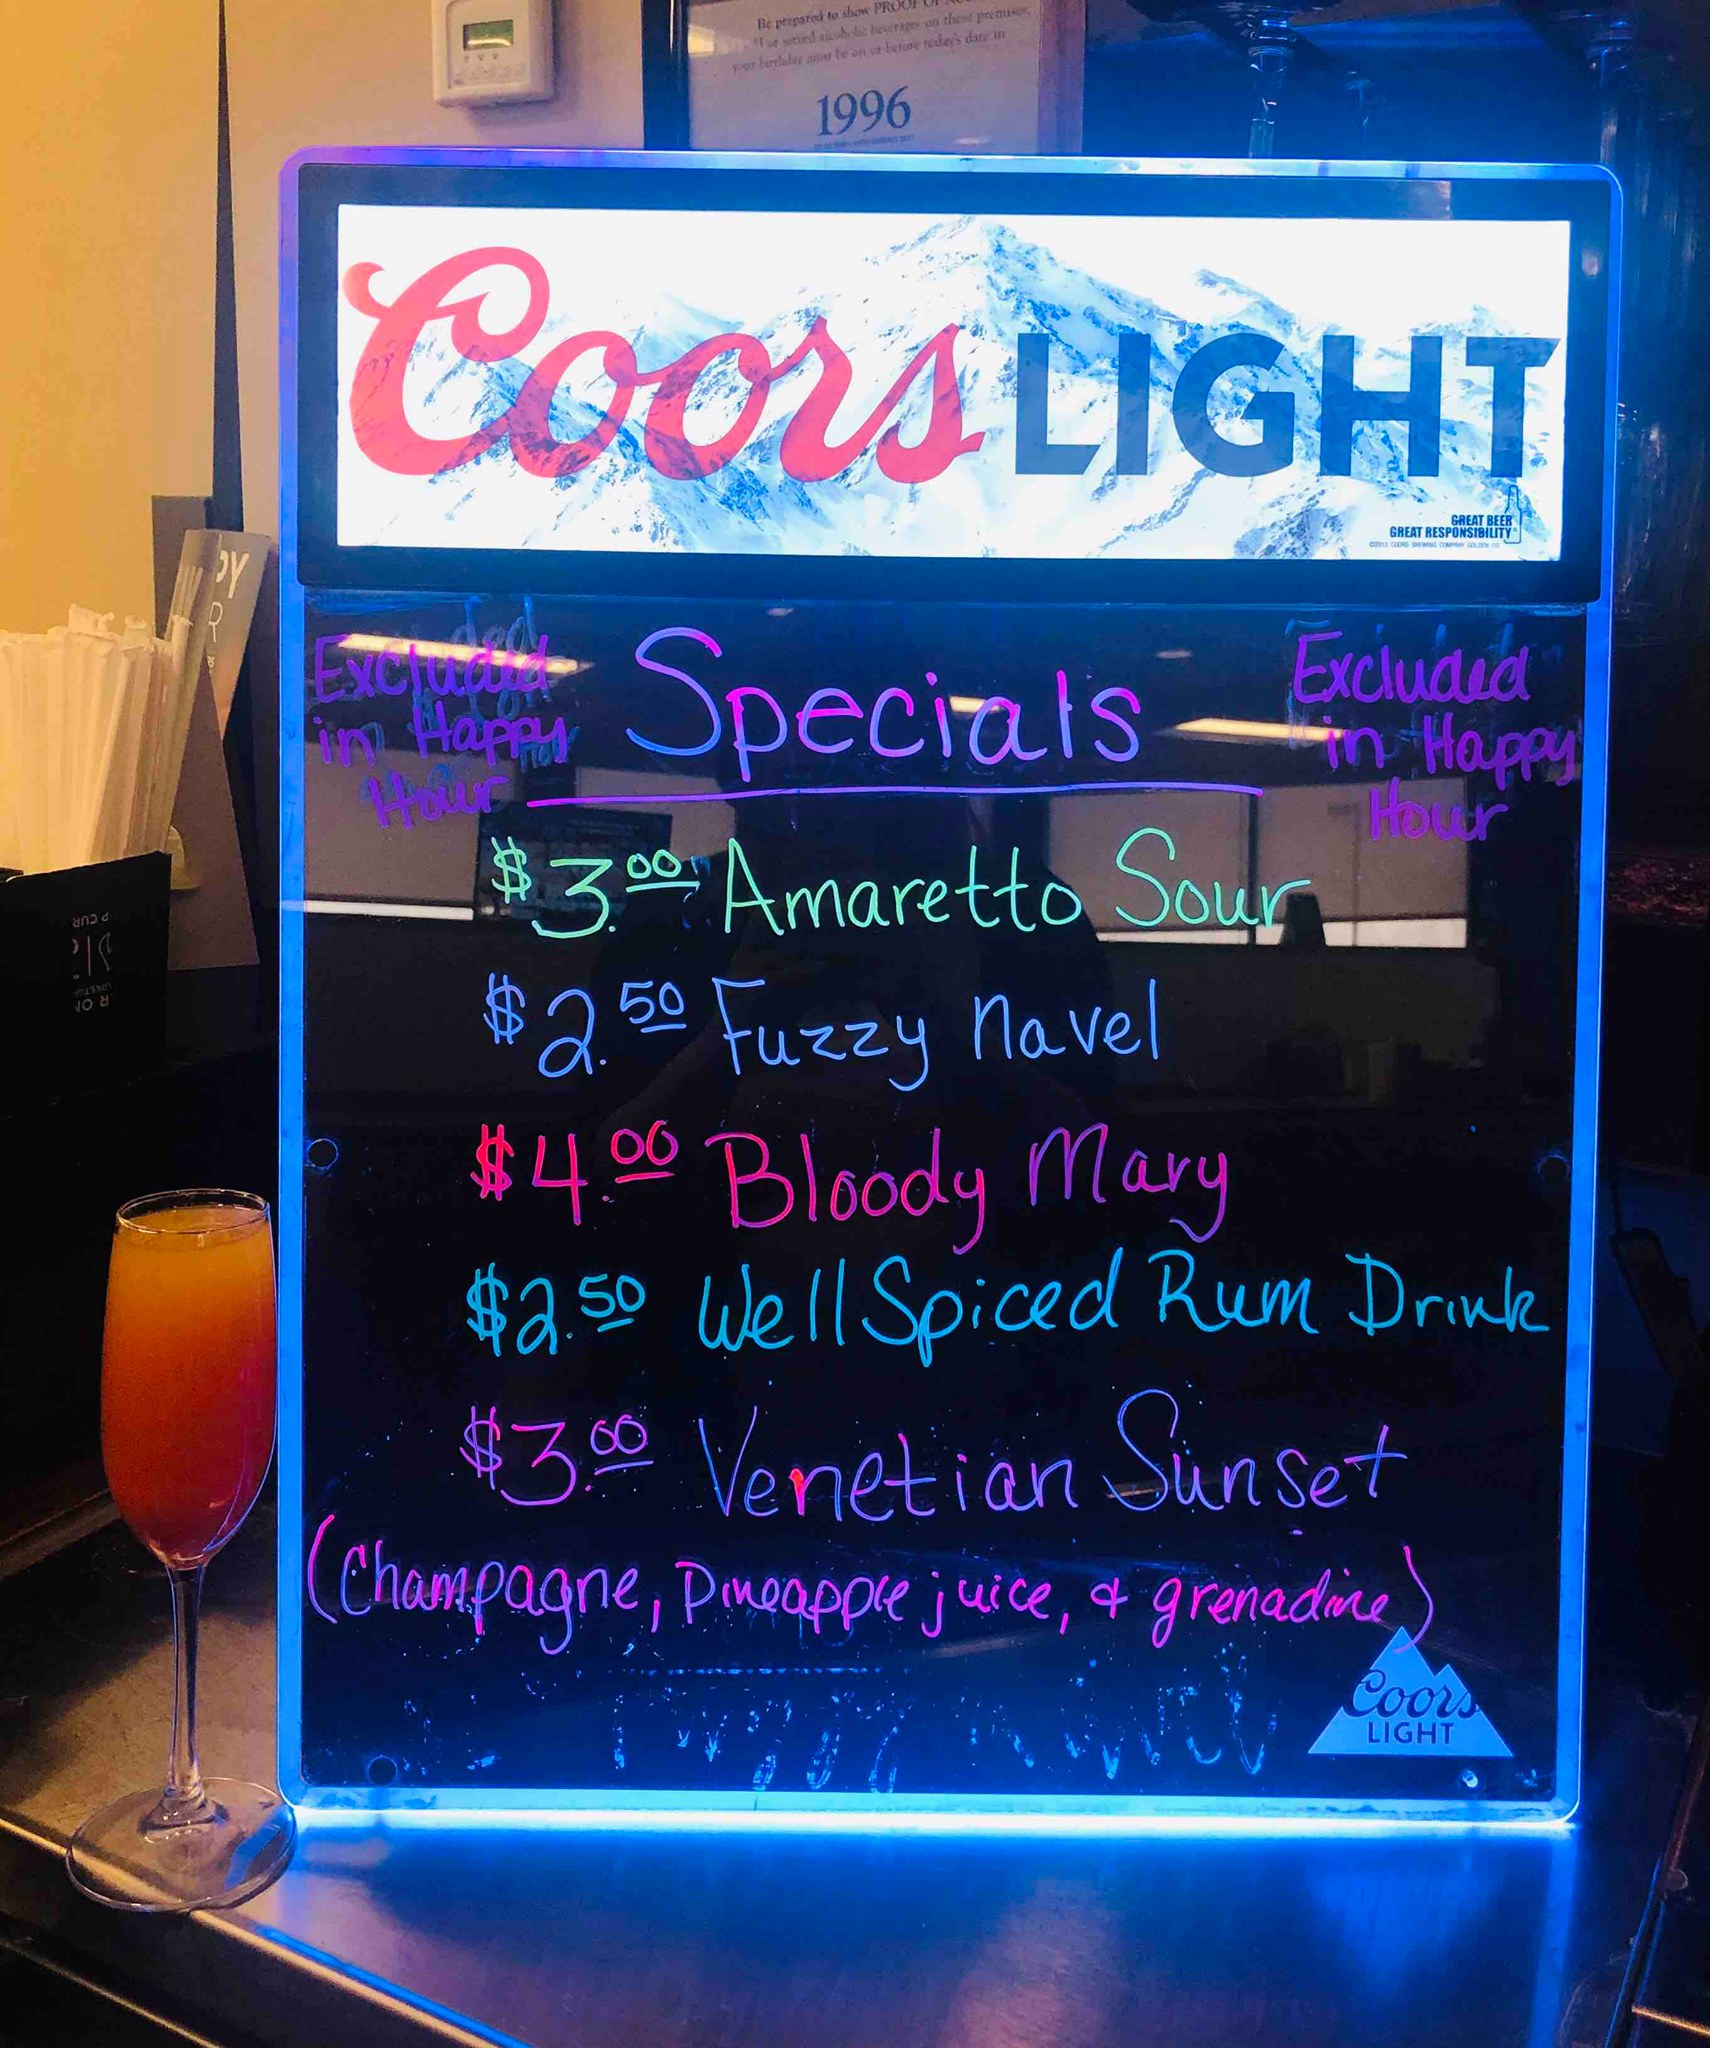 Be prepared to show PROOF OF
or served alcoholic beverages on these premises,
your birthday must be on or before today's date in
1996
Coors LIGHT
GREAT BEER
GREAT RESPONSIBILITY
COORS BREWING COMPANY, GOLDEN, CO
Excluded
in Happy
Hour
Specials
Excluded
in Happy
Hour
$3.00 Amaretto Sour
$2.50 Fuzzy Navel
$4.00 Bloody Mary
$2.50 Well Spiced Rum Drink
$3.00 Venetian Sunset
(Champagne, Pineapple juice, & grenadine)
Coors
LIGHT